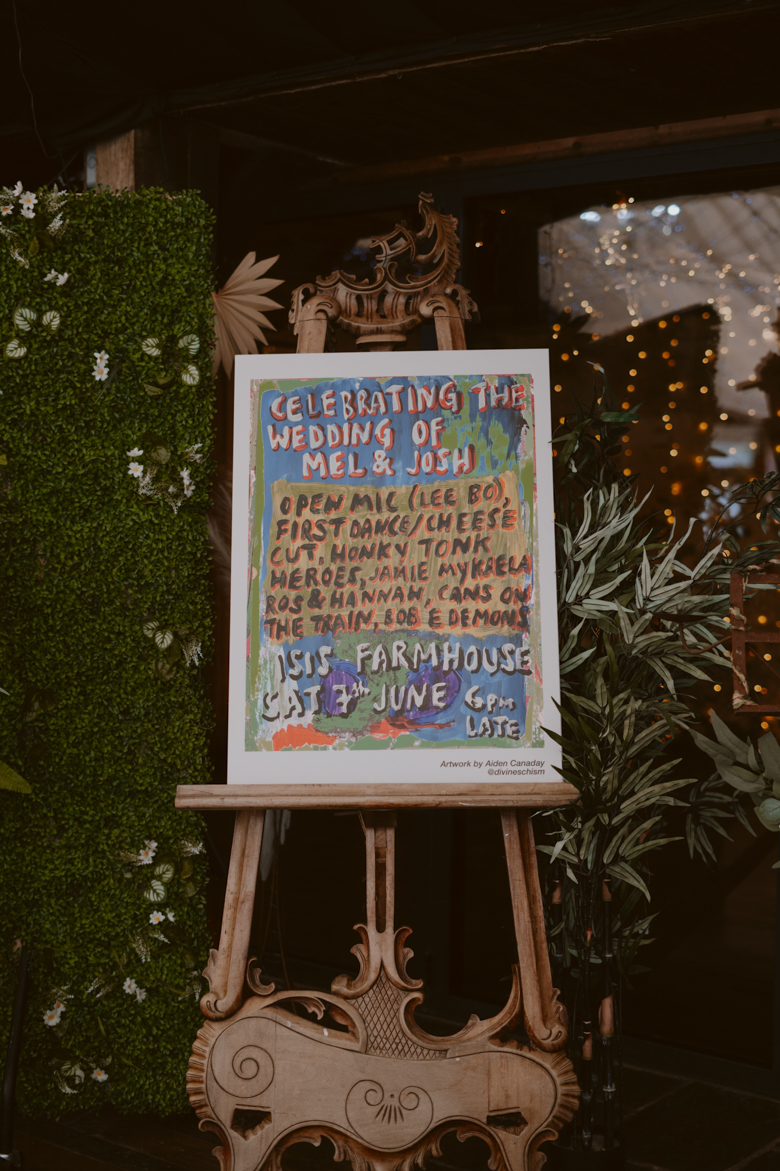 CELEBRATING THE
WEDDING OF
MEL & JOSH
OPEN MIC (LEE BO),
FIRST DANCE/CHEESE
CUT, HONKY TONK
HEROES, JAMIE MYKAELA
ROS & HANNAH, CANS ON
THE TRAIN, BOB E DEMONS
ISIS FARMHOUSE
SAT 7th JUNE 6pm
LATE
Artwork by Aiden Canaday
@divineschism